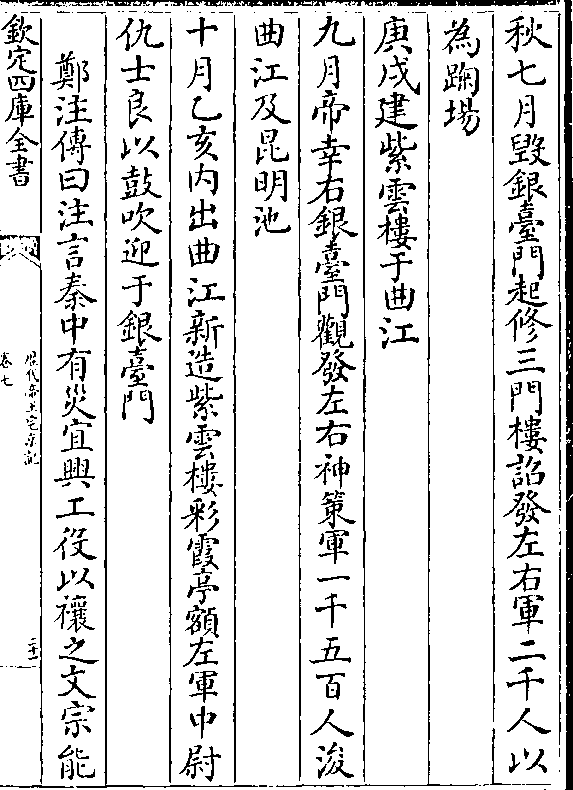 秋七月毀銀臺門起修三門樓詔發左右軍二千人以
為踘場
庚戌建紫雲樓于曲江
九月帝幸右銀臺門觀發左右神策軍一千五百人浚
曲江及昆明池
十月乙亥内出曲江新造紫雲樓彩霞亭額左軍中尉
仇士良以鼓吹迎于銀臺門
鄭注傳曰注言秦中有災宜興工役以禳之文宗能
欽定四庫全書
歷代帝王宅京記
卷七